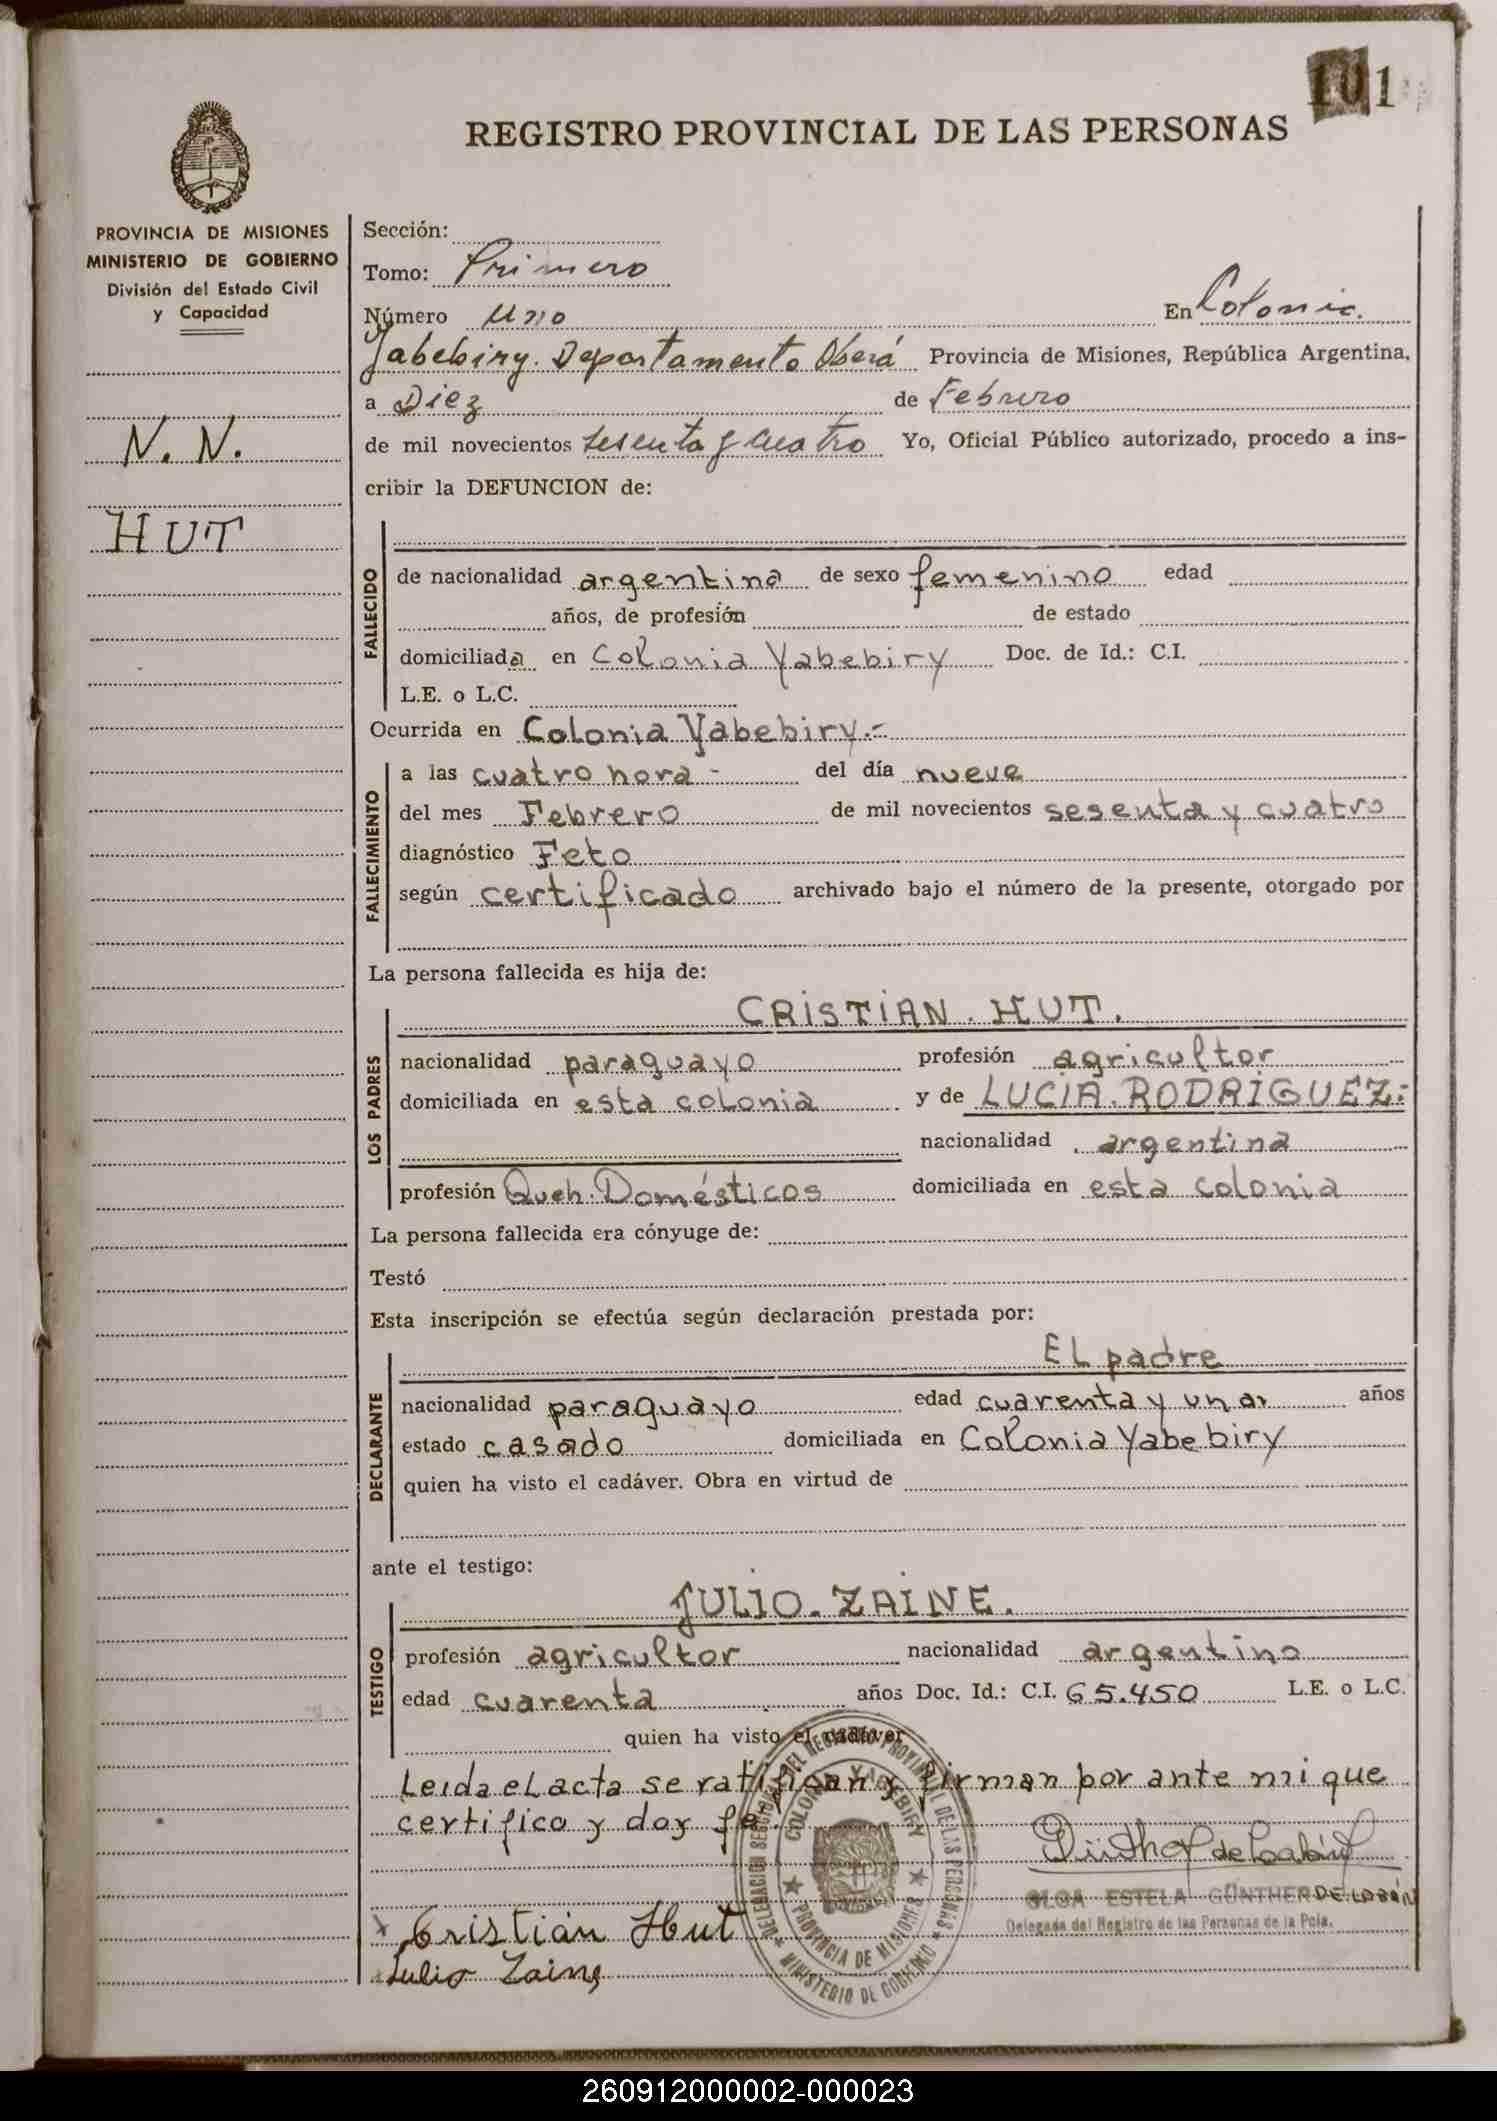 101
REGISTRO PROVINCIAL DE LAS PERSONAS
PROVINCIA DE MISIONES
MINISTERIO DE GOBIERNO
División del Estado Civil
y Capacidad
N. N.
HUT
Sección:
Tomo: Primero
Número uno En Colonia.
Yabebiry. Departamento Oberá Provincia de Misiones, República Argentina,
a Diez de Febrero
de mil novecientos sesenta y cuatro Yo, Oficial Público autorizado, procedo a ins-
cribir la DEFUNCION de:
FALLECIDO
de nacionalidad argentina de sexo femenino edad
años, de profesión de estado
domiciliada en Colonia Yabebiry Doc. de Id.: C.I.
L.E. o L.C.
Ocurrida en Colonia Yabebiry.-
FALLECIMIENTO
a las cuatro hora - del día nueve
del mes Febrero de mil novecientos sesenta y cuatro
diagnóstico Feto
según certificado archivado bajo el número de la presente, otorgado por
La persona fallecida es hija de:
LOS PADRES
CRISTIAN. HUT.
nacionalidad paraguayo profesión agricultor
domiciliada en esta colonia y de LUCIA. RODRIGUEZ:
nacionalidad argentina
profesión Queh. Domésticos domiciliada en esta colonia
La persona fallecida era cónyuge de:
Testó
Esta inscripción se efectúa según declaración prestada por:
DECLARANTE
El padre
nacionalidad paraguayo edad cuarenta y un años
estado casado domiciliada en Colonia Yabebiry
quien ha visto el cadáver. Obra en virtud de
ante el testigo:
TESTIGO
JULIO. ZAINE.
profesión agricultor nacionalidad argentino
edad cuarenta años Doc. Id.: C.I. 65.450 L.E. o L.C.
quien ha visto el cadáver
Leida el acta se ratifican y firman por ante mi que
certifico y doy fe.
DELEGACION SECCIONAL DEL REGISTRO PROVINCIAL DE LAS PERSONAS
COLONIA YABEBIRY
PROVINCIA DE MISIONES
MINISTERIO DE GOBIERNO
OLGA ESTELA GÜNTHER DE LABÁN
Delegada del Registro de las Personas de la Pcia.
Cristián Hut
Julio Zaine
260912000002-000023